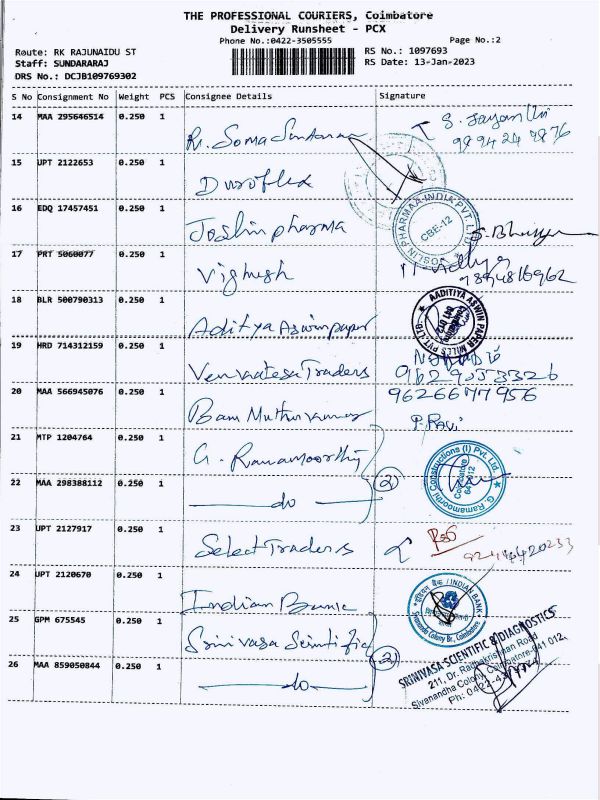 THE PROFESSIONAL COURIERS, Coimbatore
Delivery Runsheet - PCX
Phone No.:0422-3505555
Page No.:2
Route: RK RAJUNAIDU ST
RS No.: 1097693
Staff: SUNDARARAJ
RS Date: 13-Jan-2023
DRS No.: DCJB109769302
S No Consignment No Weight PCS Consignee Details Signature
14 MAA 295646514 0.250 1 R. Soma Sundaram
15 UPT 2122653 0.250 1 Duroflex
16 EDQ 17457451 0.250 1 Joslin pharma
JOSLIN PHARMAA INDIA PVT. LTD.
CBE-12
17 PRT 5060077 0.250 1 Vighesh
18 BLR 500790313 0.250 1 Aditya Aswin paper
AADITIYA ASWIN PAPER MILLS PVT. LTD.
19 HRD 714312159 0.250 1 Venkatesa Traders
20 MAA 566945076 0.250 1 9626677956
P. Ravi
21 MTP 1204764 0.250 1 G. Ramamoorthy
G. Ramamoorthi Constructions (I) Pvt. Ltd.
Coimbatore
641 012
22 MAA 298388112 0.250 1 do (2)
23 UPT 2127917 0.250 1 Select Traders
24 UPT 2120670 0.250 1 Indian Bank
इंडियन बैंक / INDIAN BANK
Sivananda Colony Br., Coimbatore
25 GPM 675545 0.250 1 Srinivasa Scintific
SRINIVASA SCIENTIFIC & DIAGNOSTICS
211, Dr. Radhakrishnan Road
Sivanandha Colony, Coimbatore-641 012.
26 MAA 859050844 0.250 1 do (2)